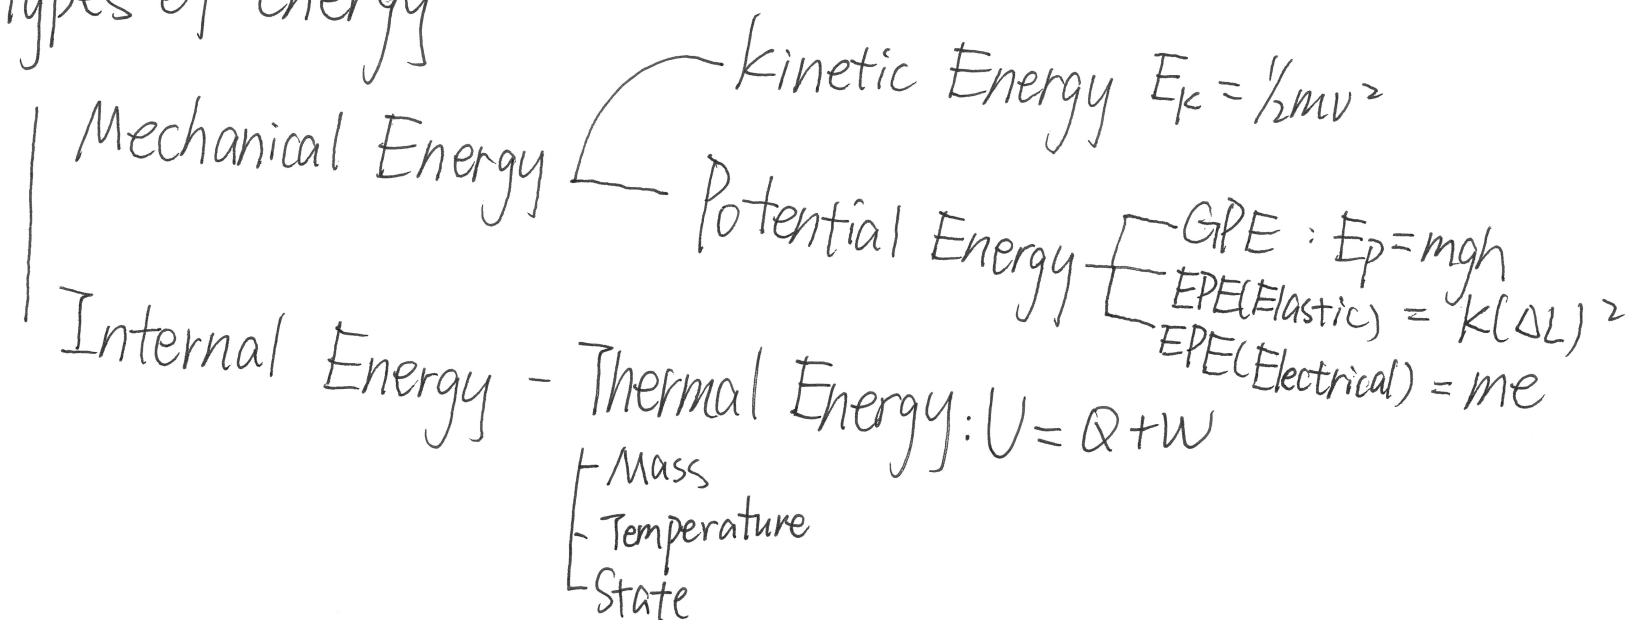 Types of Energy
Kinetic Energy Ek = 1/2mv²
Mechanical Energy
Potential Energy
GPE : Ep = mgh
EPE(Elastic) = k(ΔL)²
EPE(Electrical) = me
Internal Energy - Thermal Energy : U = Q + W
- Mass
- Temperature
- State